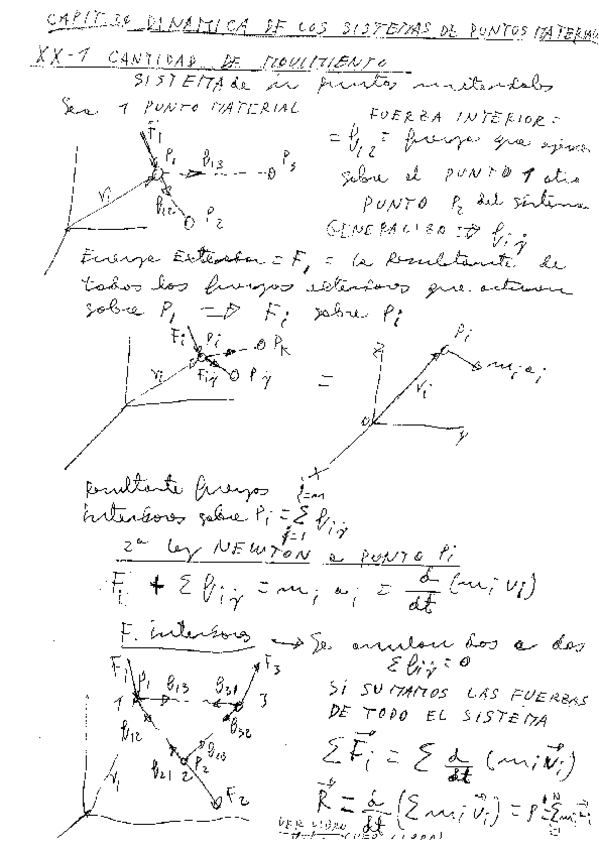 CAPIT. 20 DINAMICA DE LOS SISTEMAS DE PUNTOS MATERIAL
XX-1 CANTIDAD DE MOVIMIENTO
SISTEMA de n puntos materiales
Sea 1 PUNTO MATERIAL
FUERZA INTERIOR =
= f12 = fuerza que ejerce
sobre el PUNTO 1 otro
PUNTO P2 del sistema
GENERALIZO => fij
F1
P1
f13
P3
ri
f12
P2
Fuerza Exterior = F1 = la Resultante de
todas las fuerzas exteriores que actuan
sobre P1 => Fi sobre Pi
Fi
Pi
PK
ri
Fij
Pj
=
Z
Pi
mi ai
ri
O
Y
X
Resultante fuerzas
interiores sobre Pi = Σ fij
j=n
j=1
2ª ley NEWTON a PUNTO Pi
Fi + Σ fij = mi ai = d/dt (mi vi)
F. interiores → Se anulan dos a dos
Σ fij = 0
SI SUMAMOS LAS FUERZAS
DE TODO EL SISTEMA
F1
P1
f13
f31
F3
1
3
f12
f32
f23
f21
2
P2
F2
ri
Σ Fi = Σ d/dt (mi vi)
R = d/dt (Σ mi vi) =
VER LIBRO